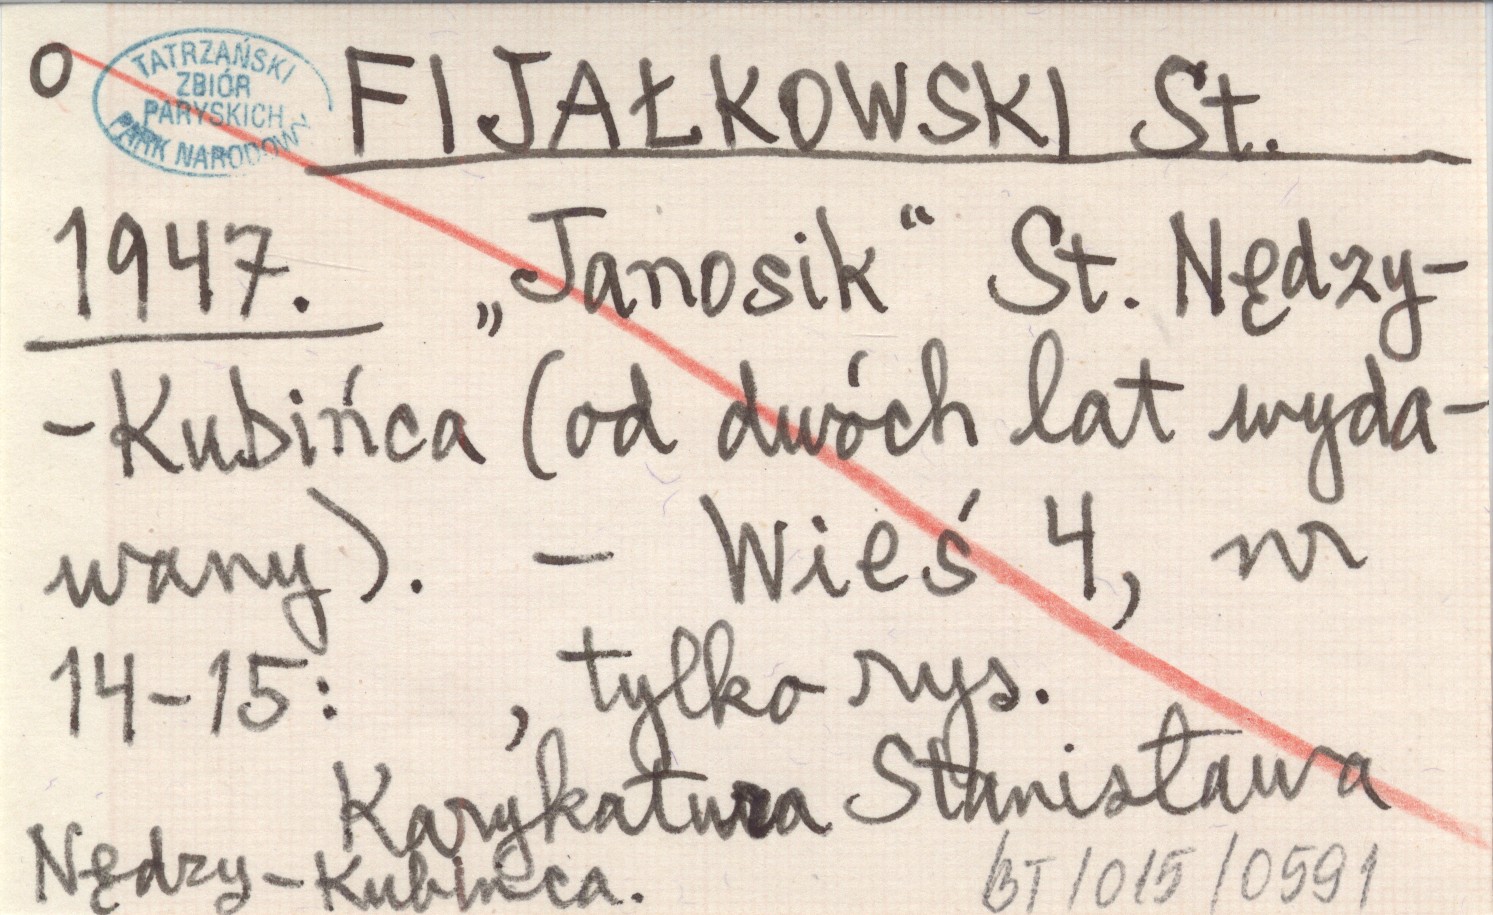 o
TATRZAŃSKI
ZBIÓR
PARYSKICH
PARK NARODOWY
FIJAŁKOWSKI St.
1947. „Janosik“ St. Nędzy-
-Kubińca (od dwóch lat wyda-
wany). – Wieś 4, nr
14-15: , tylko rys.
Karykatura Stanisława
Nędzy-Kubińca.
BT/015/0591